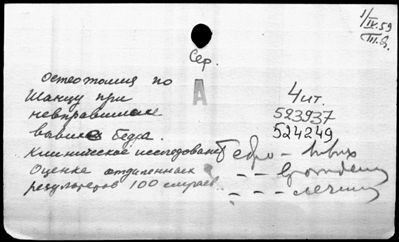 1/IV.59
III.Э.
Сер.
А
Остеотомия по
Шанцу при
невправимом
вывихе бедра.
Клиническое исследование
Оценка отдаленных
результатов 100 случаев.
4 ит.
523937
524249
Бедро – вывих
– – врожден
– – – лечение